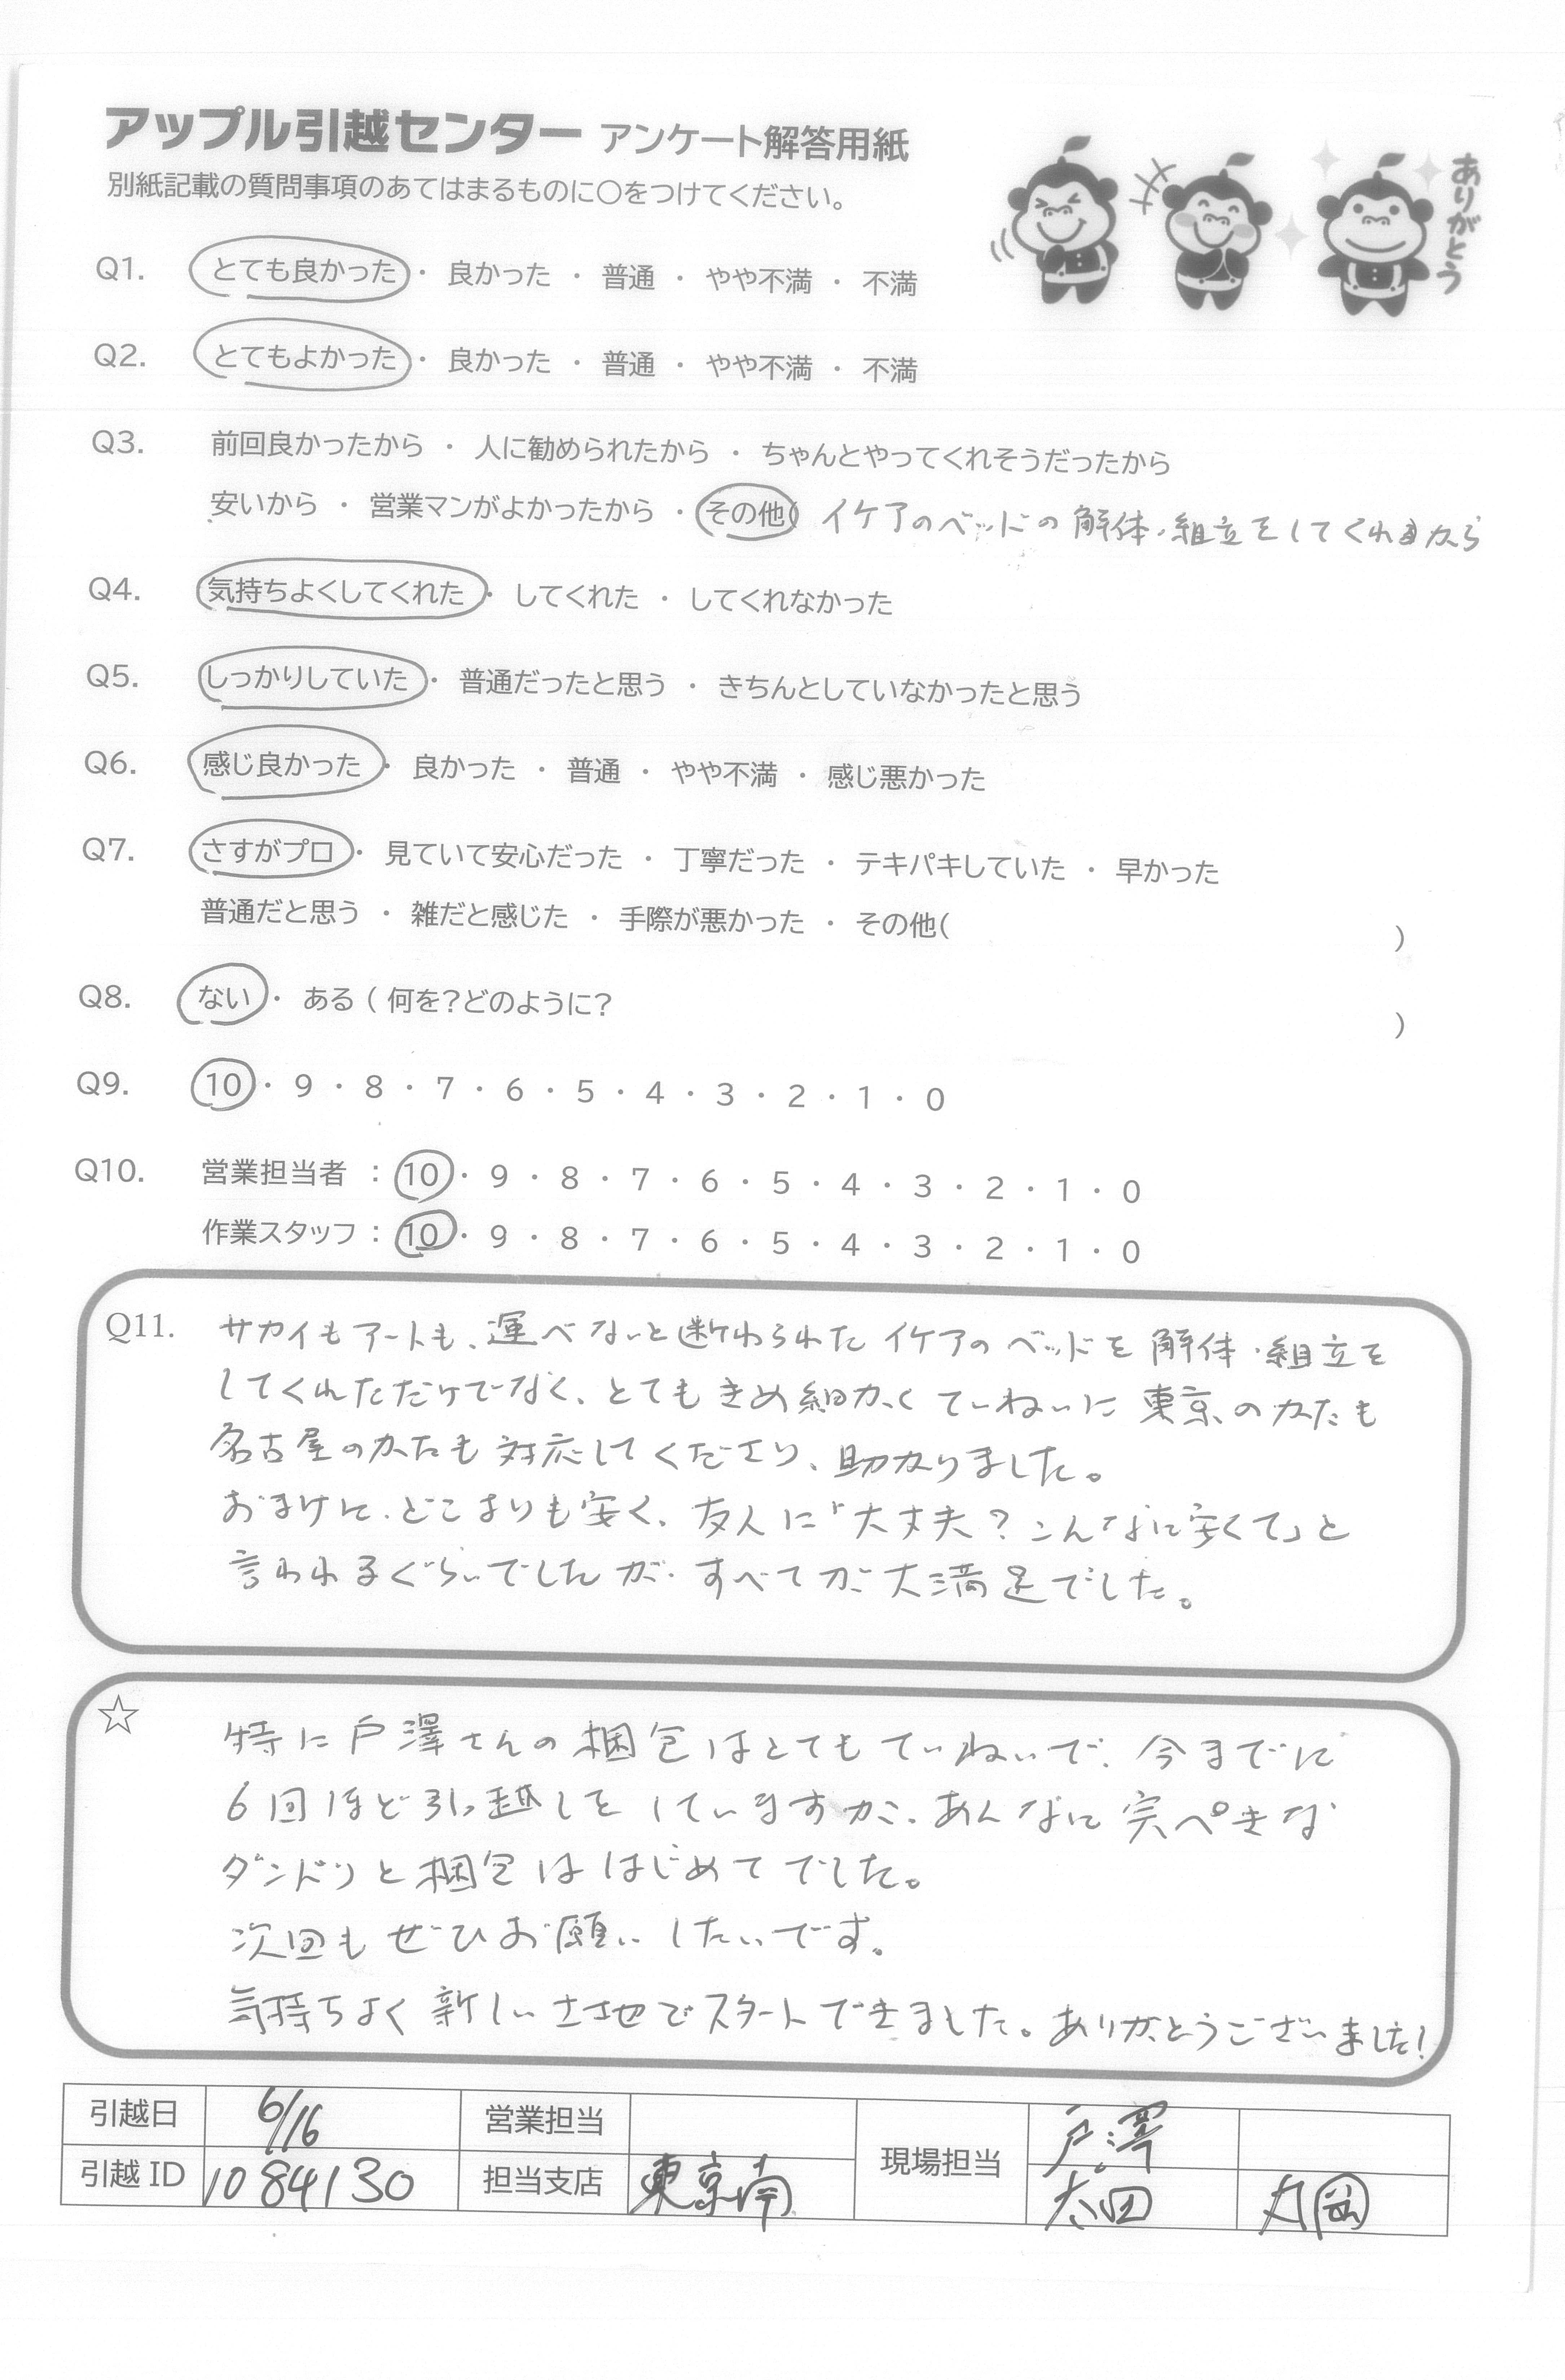 アップル引越センター アンケート解答用紙
別紙記載の質問事項のあてはまるものに〇をつけてください。
ありがとう
Q1. とても良かった ・ 良かった ・ 普通 ・ やや不満 ・ 不満
Q2. とてもよかった ・ 良かった ・ 普通 ・ やや不満 ・ 不満
Q3. 前回良かったから ・ 人に勧められたから ・ ちゃんとやってくれそうだったから
安いから ・ 営業マンがよかったから ・ その他( イケアのベッドの解体・組立をしてくれるから
Q4. 気持ちよくしてくれた ・ してくれた ・ してくれなかった
Q5. しっかりしていた ・ 普通だったと思う ・ きちんとしていなかったと思う
Q6. 感じ良かった ・ 良かった ・ 普通 ・ やや不満 ・ 感じ悪かった
Q7. さすがプロ ・ 見ていて安心だった ・ 丁寧だった ・ テキパキしていた ・ 早かった
普通だと思う ・ 雑だと感じた ・ 手際が悪かった ・ その他( )
Q8. ない ・ ある ( 何を?どのように? )
Q9. 10 ・ 9 ・ 8 ・ 7 ・ 6 ・ 5 ・ 4 ・ 3 ・ 2 ・ 1 ・ 0
Q10. 営業担当者 : 10 ・ 9 ・ 8 ・ 7 ・ 6 ・ 5 ・ 4 ・ 3 ・ 2 ・ 1 ・ 0
作業スタッフ : 10 ・ 9 ・ 8 ・ 7 ・ 6 ・ 5 ・ 4 ・ 3 ・ 2 ・ 1 ・ 0
Q11. サカイもアートも、運べないと断わられたイケアのベッドを解体・組立を
してくれただけでなく、とてもきめ細かくていねいに東京のかたも
名古屋のかたも対応してくださり、助かりました。
おまけに、どこよりも安く、友人に「大丈夫?こんなに安くて」と
言われるぐらいでしたが、すべてが大満足でした。
☆ 特に戸澤さんの梱包はとてもていねいで、今までに
6回ほど引っ越しをしていますが、あんなに完ぺきな
ダンドリと梱包ははじめてでした。
次回もぜひお願いしたいです。
気持ちよく新しい土地でスタートできました。ありがとうございました!
引越日 6/16 営業担当 現場担当 戸澤
引越 ID 1084130 担当支店 東京南 太田 力岡